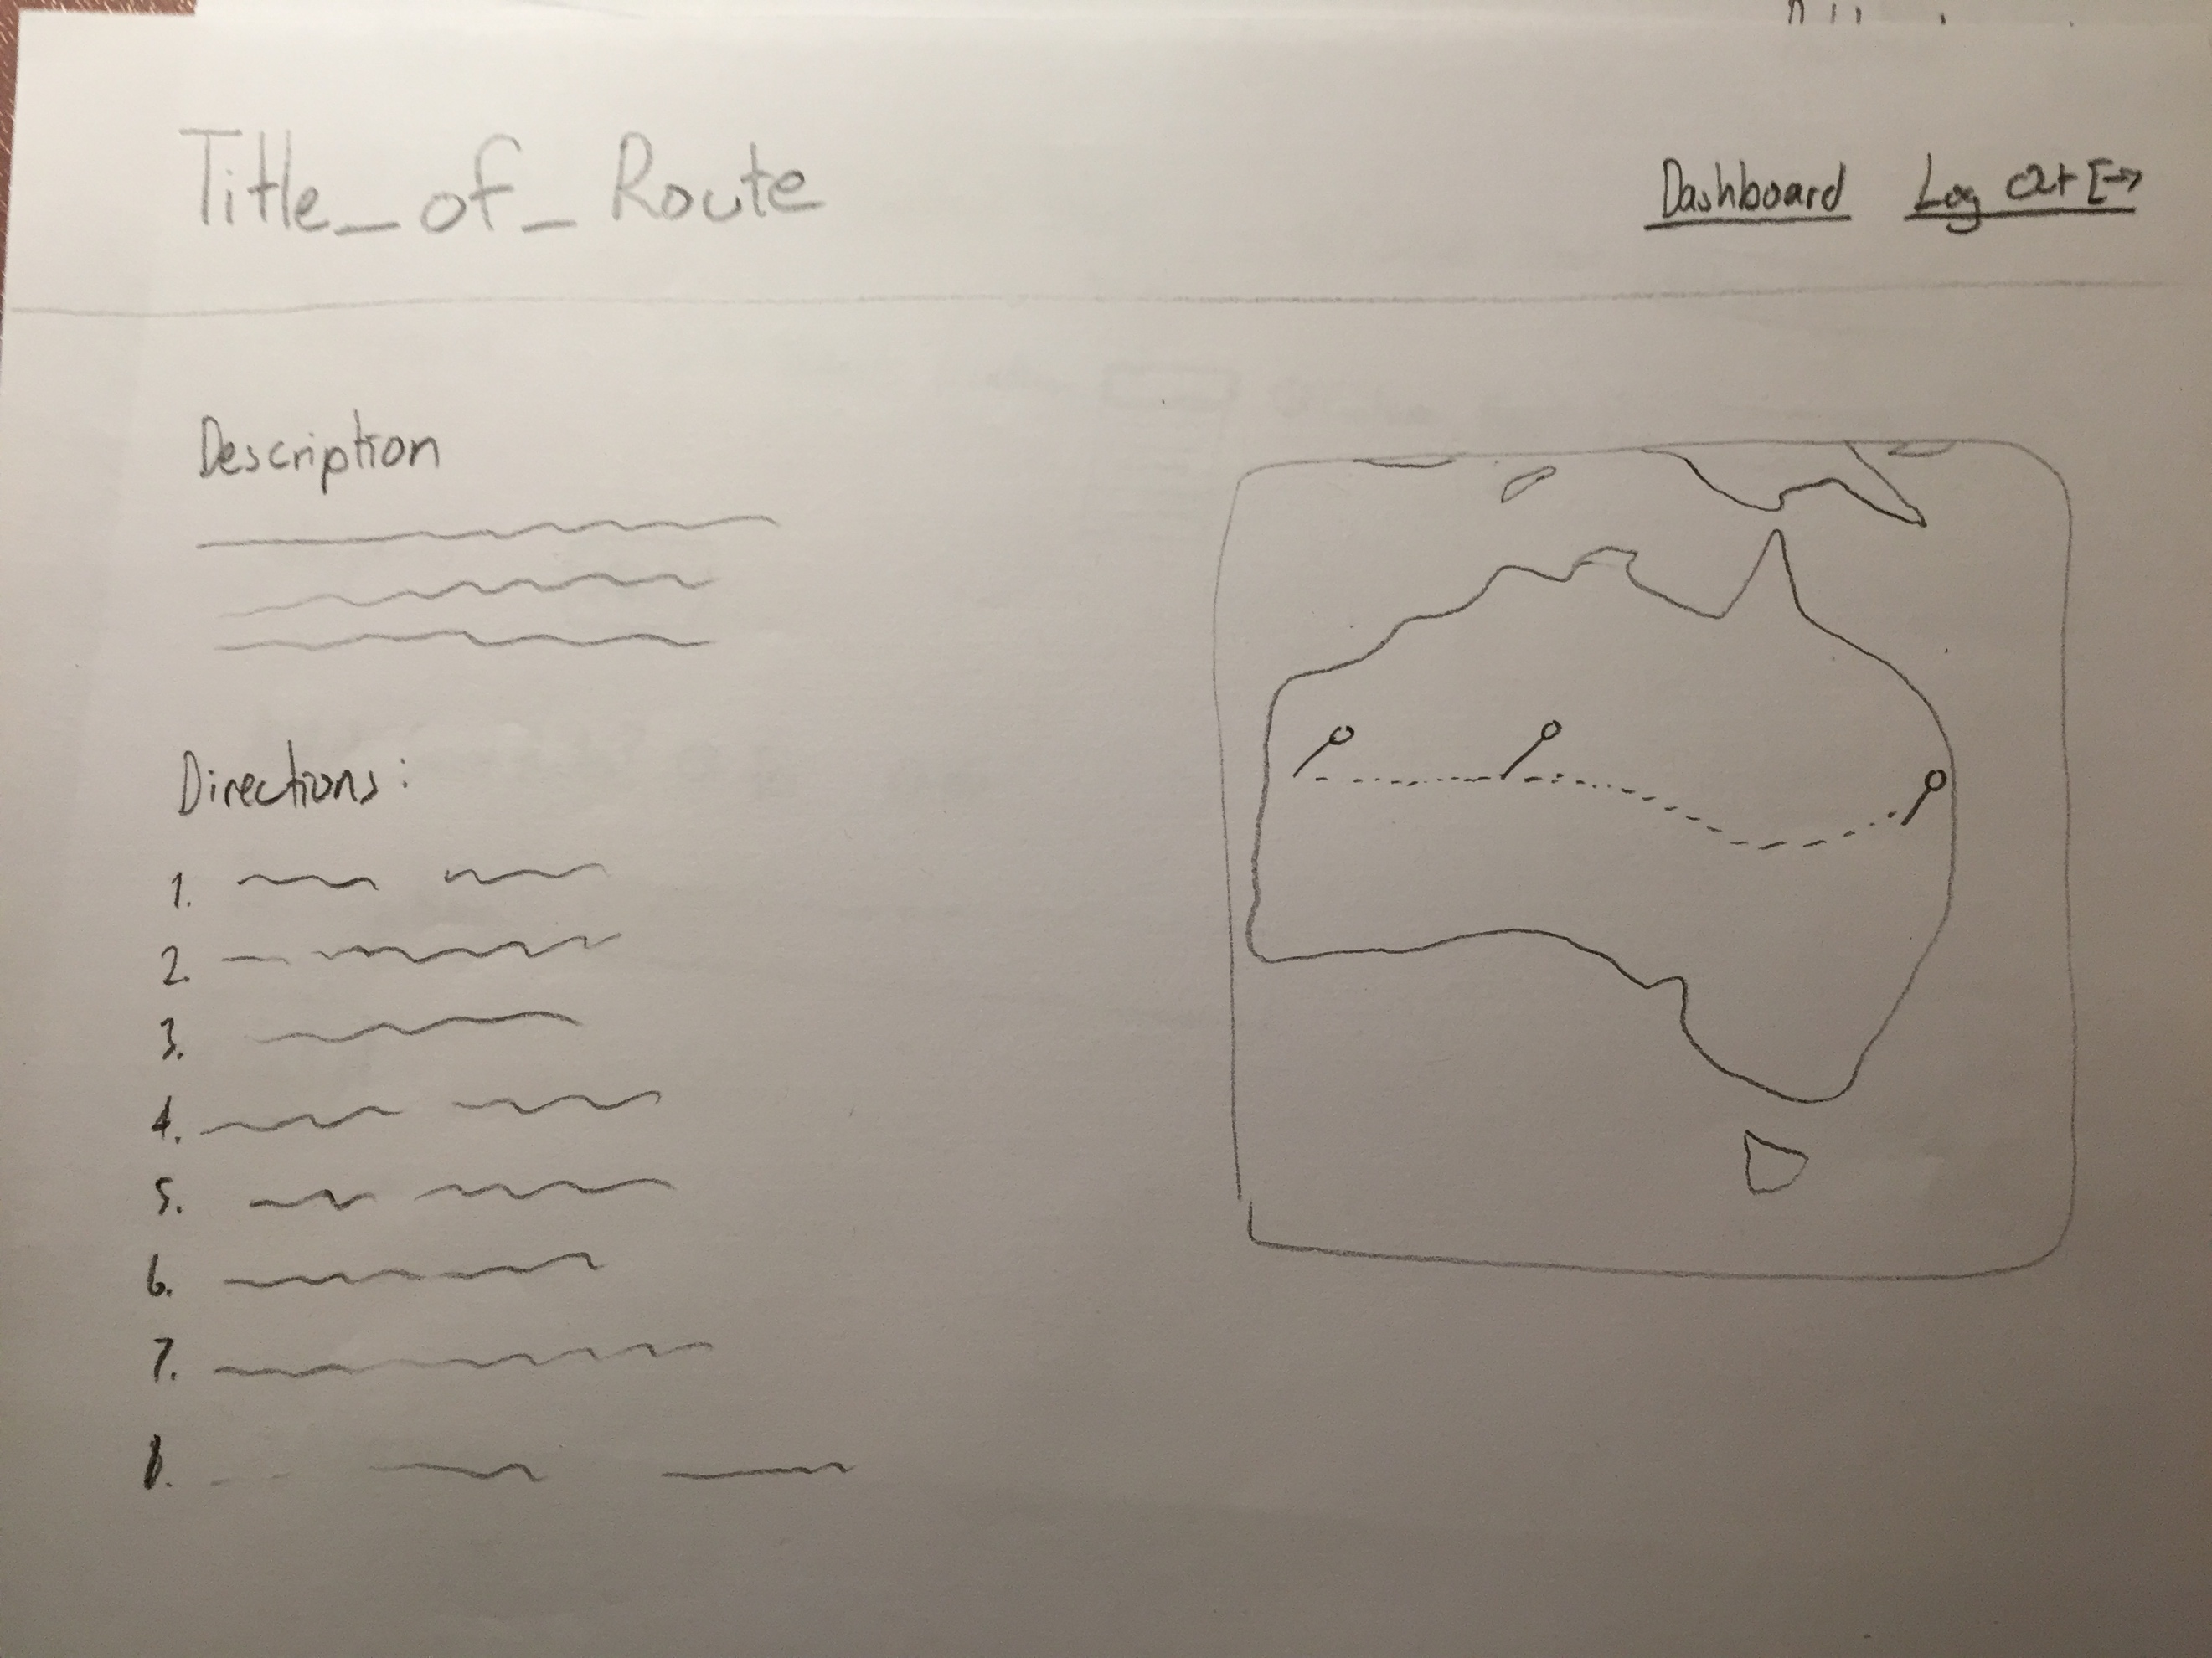 Title_of_Route
Dashboard Log Out
Description
Directions:
1.
2.
3.
4.
5.
6.
7.
8.